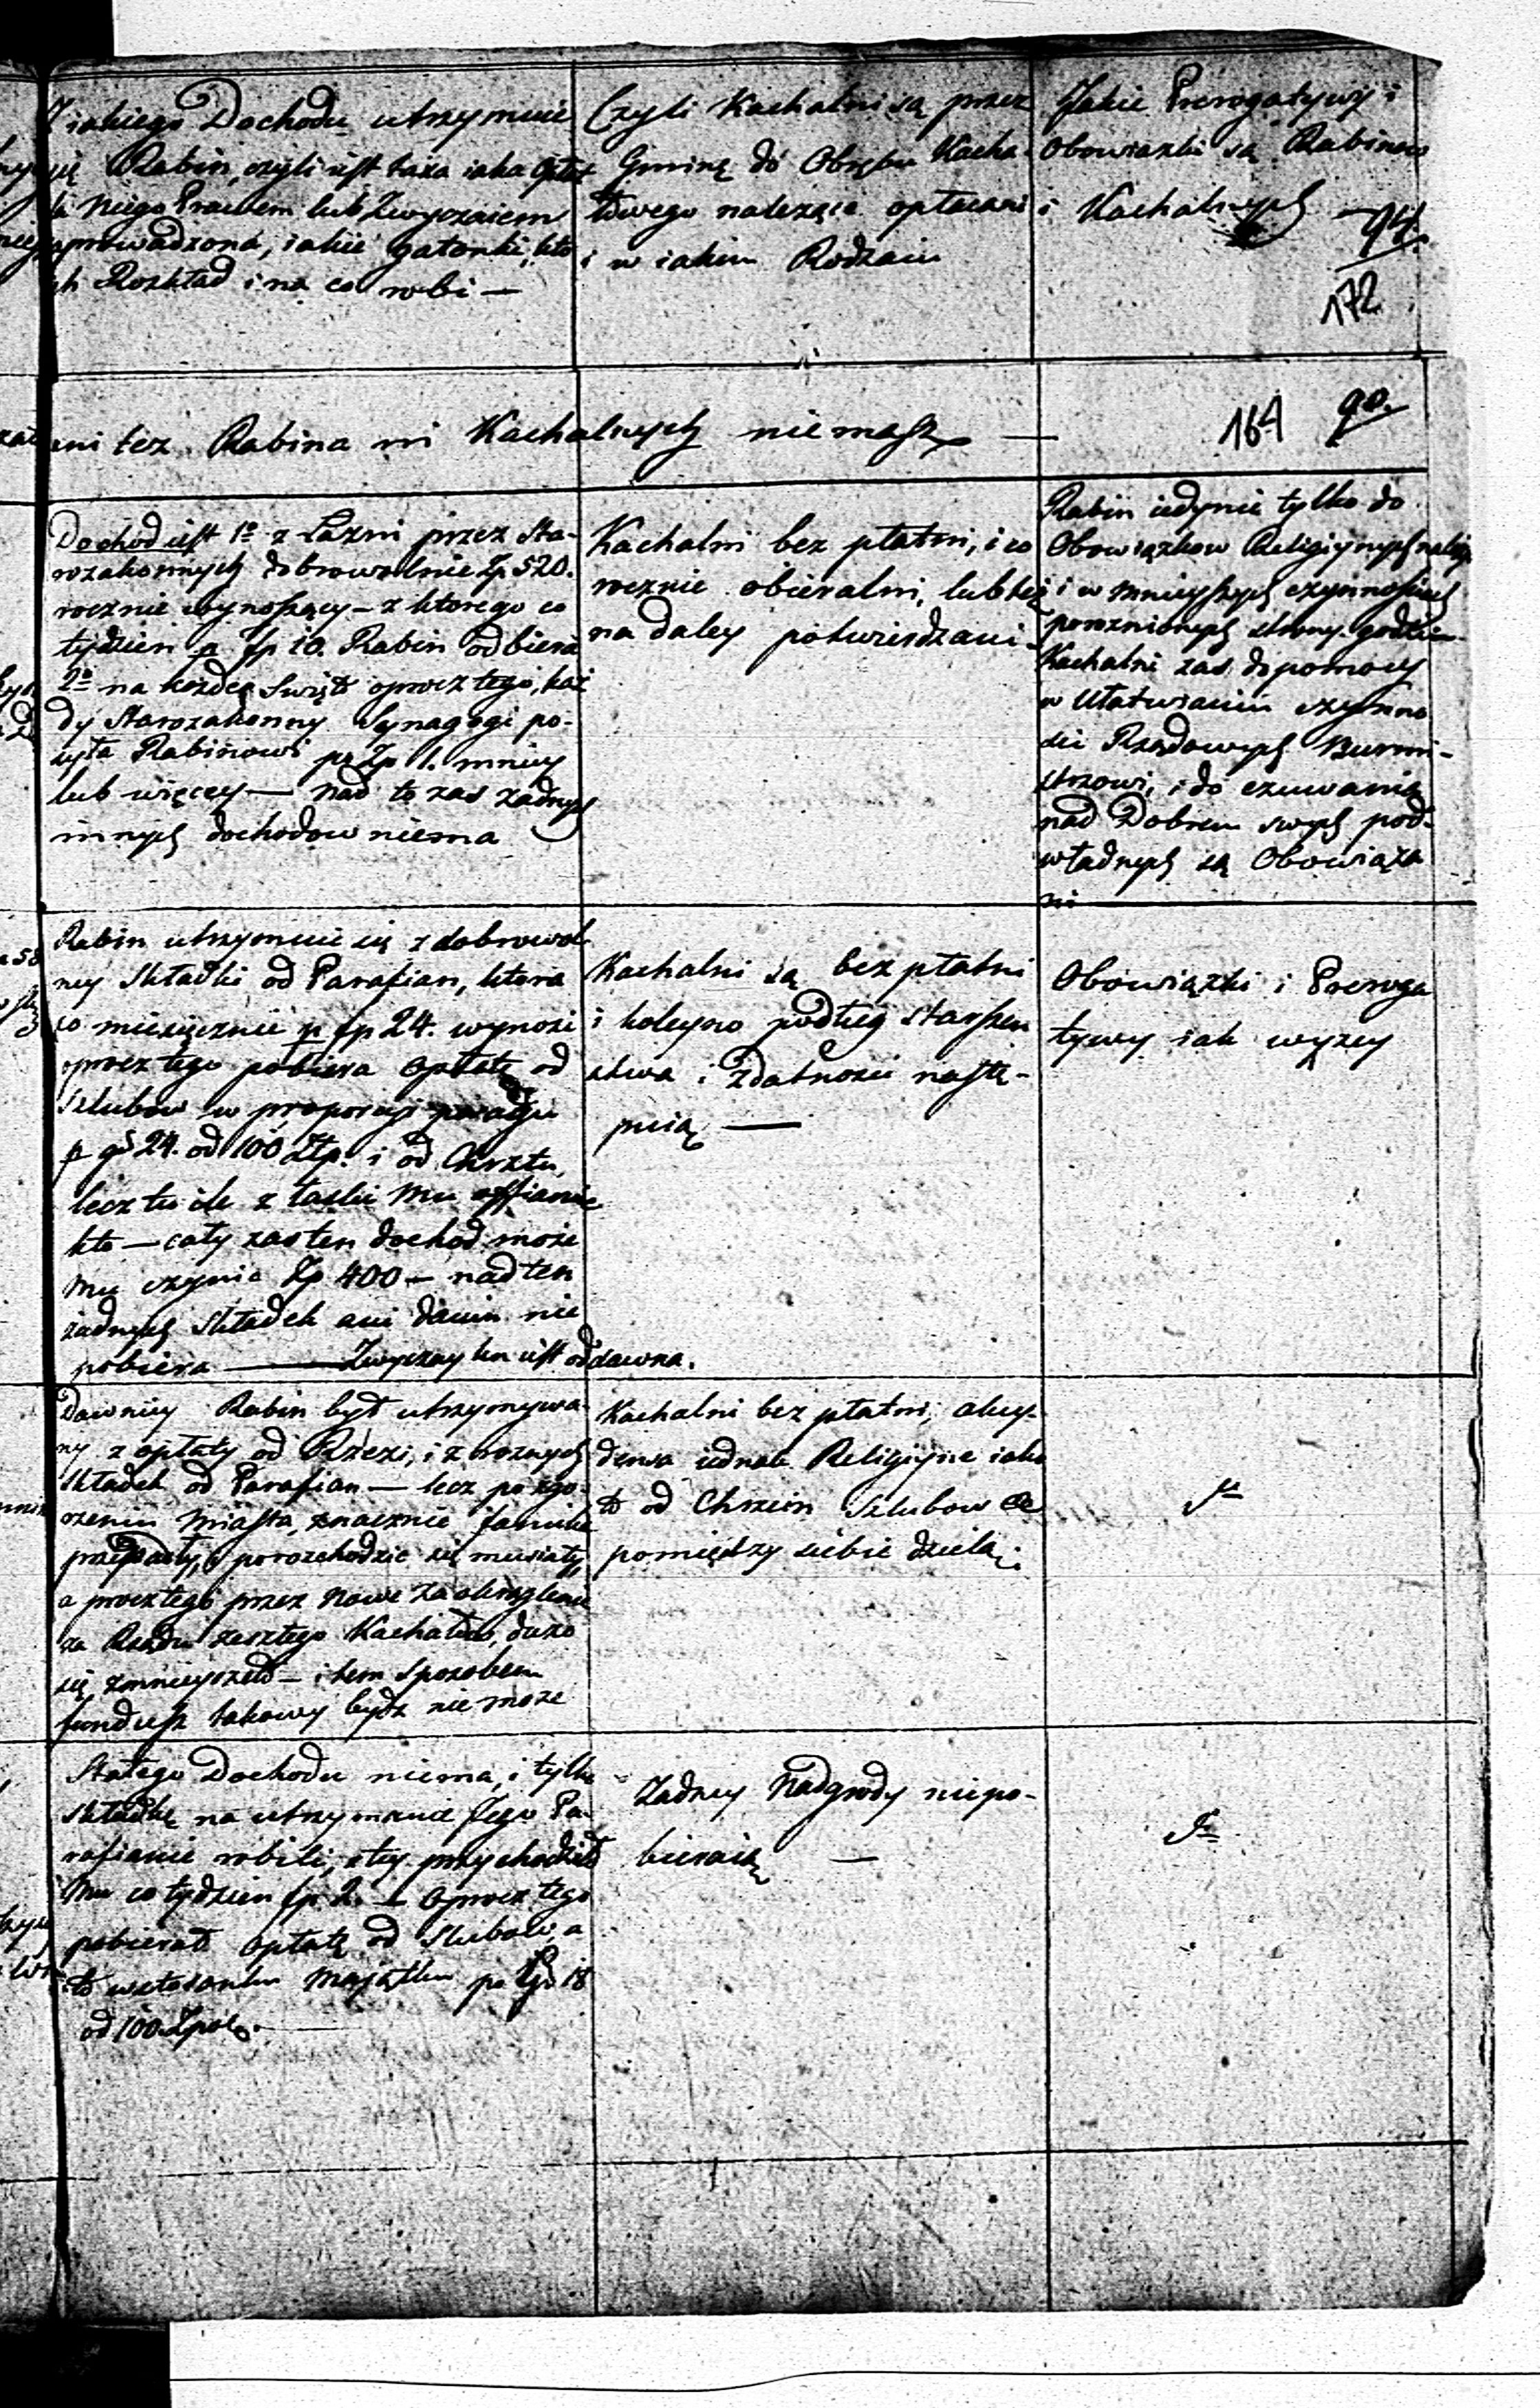 Z iakiego Dochodu utrzymuie
się Rabin, czyli iest taxa iaka Opłat
dla Niego Prawem lub Zwyczaiem
zaprowadzona, iakie gatonki, kto
ich Rozkład i na co robi —
Czyli Kachalni są przez
Gminę do Obrębu Kacha-
łowego należące opłacani
i w iakim Rodzaiu
Jakie Prerogatywy i
Obowiazki są Rabinow
i Kachalnych
94.
172
ani tez Rabina ni Kachalnych niemasz —
164 90.
Dochod iest 1o z Łazni przez Sta-
rozakonnych dobrowolnie Zp 520.
rocznie wynoszący — z ktorego co
tydzien p Zp 10. Rabin odbiera
2o na kozde Swięto oprocz tego, kaz
dy Starozakonny Synagogi po-
syła Rabinowi po Zp 1. mniey
lub więcey — nad to zas zadnych
innych dochodow niema
Kachalni bez płatni, i co
rocznie obieralni, lub też
na daley potwierdzani
Rabin iedynie tylko do
Obowiązkow Religiynych należy
i w mnieyszych czynnosciach
poroznionych strony godzi
Kachalni zas do pomocy
w Ułatwianiu czynno
sci Rządowych Burmi-
strzowi, i do czuwania
nad Dobrem swych pod-
władnych są Obowiąza
ni
Rabin utrzymuie się z dobrowol-
ney Składki od Parafian, ktora
co miesięcznie p Zp 24. wynosi
oprocz tego pobiera Opłatę od
Szlubow w proporcyi posagu
p gr 24. od 100 Złp. i od Chrztu,
lecz tu ile z łaski Mu offiaruie
kto — cały zas ten dochod może
Mu czynic Zp 400 — nad ten
żadnych Składek ani danin nie
pobiera — Zwyczay ten iest od dawna.
Kachalni są bez płatni
i koleyno podług Starszen
stwa i Zdatnosci nastę-
puią —
Obowiązki i Preroga
tywy iak wyzey
Dawniey Rabin był utrzymywa-
ny z opłaty od Rzezi, i z roznych
Składek od Parafian — lecz po zgo-
rzeniu Miasta, znacznie familie
przepadły, porozchodzic się musiały,
a procz tego przez Nowe Zaokrąglenie
za Rządu zeszłego Kachałow, duzo
się zmnieyszeło — i tem sposobem
fundusz takowy bydz nie moze
Kachalni bez płatni, akcy-
densa iednak Religiyne iako
to od Chrzcin Szlubow &c
pomiędzy siebie dzielą.
Stałego Dochodu niema, i tylko
Składkę na utrzymanie Jego Pa-
rafianie robili, z tey przychodziło
Mu co tydzien Zp 2. — Oprocz tego
pobierał Opłatę od Slubow, a
to w stosunku Maiątku po Gr 18
od 100. Zpol.
Zadney Nadgrody niepo-
bieraią —